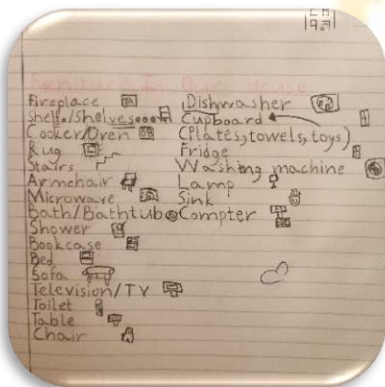 Furniture In Our House
Fireplace
Shelf/Shelves
Cooker/Oven
Rug
Stairs
Armchair
Microwave
Bath/Bathtub
Shower
Bookcase
Bed
Sofa
Television/TV
Toilet
Table
Chair
Dishwasher
Cupboard
(Plates,towels,toys)
Fridge
Washing machine
Lamp
Sink
Compter